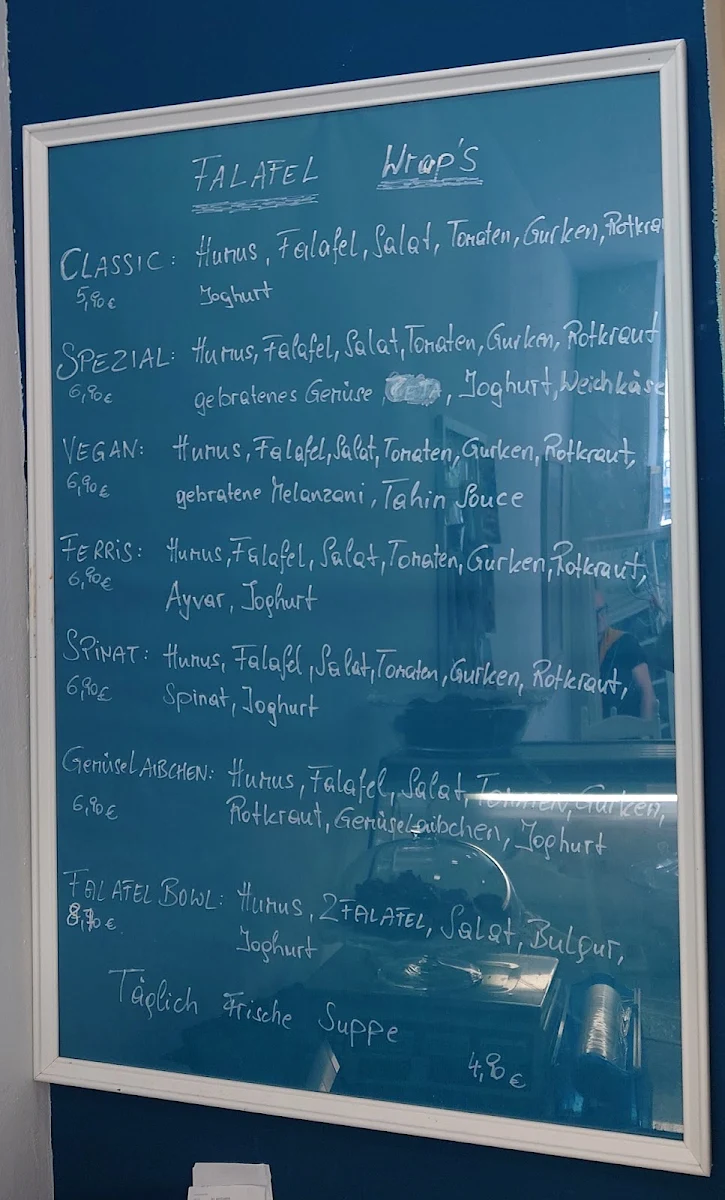 FALAFEL Wrap's
CLASSIC: Humus, Falafel, Salat, Tomaten, Gurken, Rotkra
5,90€ Joghurt
SPEZIAL: Humus, Falafel, Salat, Tomaten, Gurken, Rotkraut
6,90€ gebratenes Gemüse, , Joghurt, Weichkäse
VEGAN: Humus, Falafel, Salat, Tomaten, Gurken, Rotkraut,
6,90€ gebratene Melanzani, Tahin Souce
FERRIS: Humus, Falafel, Salat, Tomaten, Gurken, Rotkraut,
6,90€ Ayvar, Joghurt
SPINAT: Humus, Falafel, Salat, Tomaten, Gurken, Rotkraut,
6,90€ Spinat, Joghurt
GEMÜSELAIBCHEN: Humus, Falafel, Salat, Tomaten, Gurken,
6,90€ Rotkraut, Gemüselaibchen, Joghurt
FALAFEL BOWL: Humus, 2 FALAFEL, Salat, Bulgur,
Joghurt
Täglich Frische Suppe
4,90€